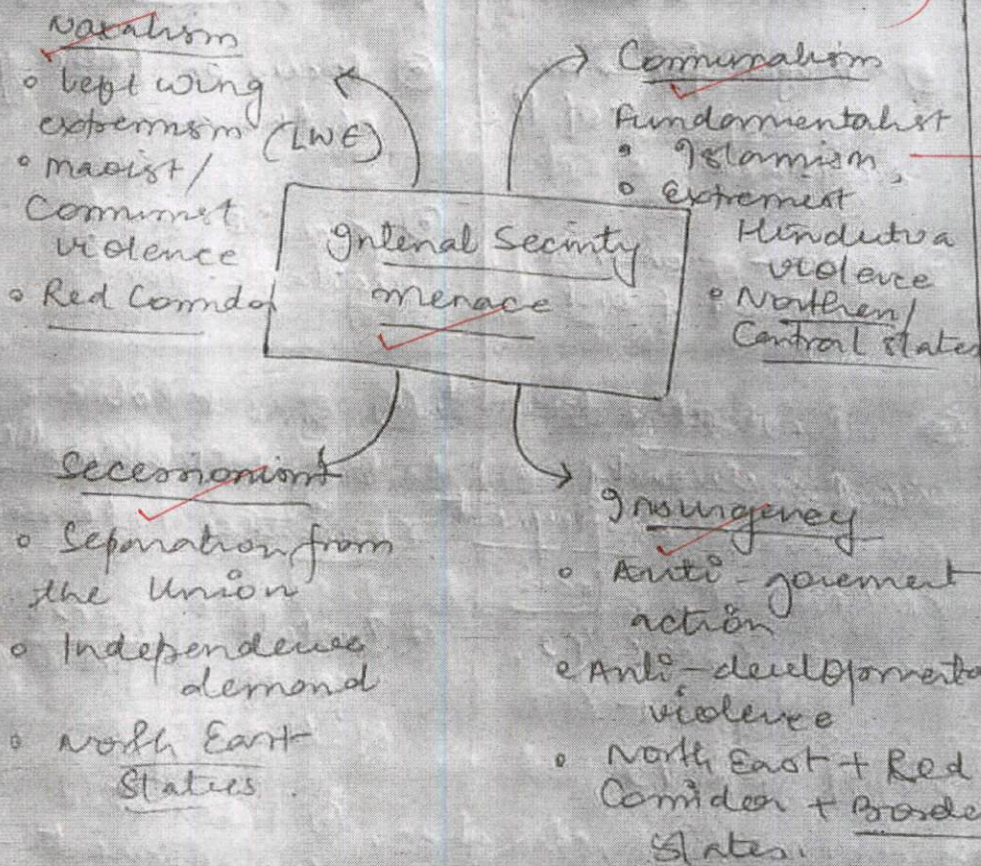 Naxalism
• Left wing
extremism (LWE)
• Maoist/
Communist
violence
• Red Corridor
Communalism
Fundamentalist
• Islamism,
• Extremist
Hindutva
violence
• Northern/
Central states
Internal Security
menace
Secessionism
• Separation from
the Union
• Independence
demand
• North East
States
Insurgency
• Anti-government
action
• Anti-developmenta
violence
• North East + Red
Corridor + Borde
States.